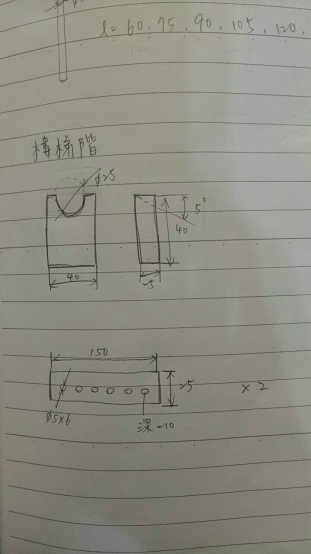 l = 60, 75, 90, 105, 120,
樓梯階
φ25
5°
40
40
150
25
x 2
φ5x6
深 10